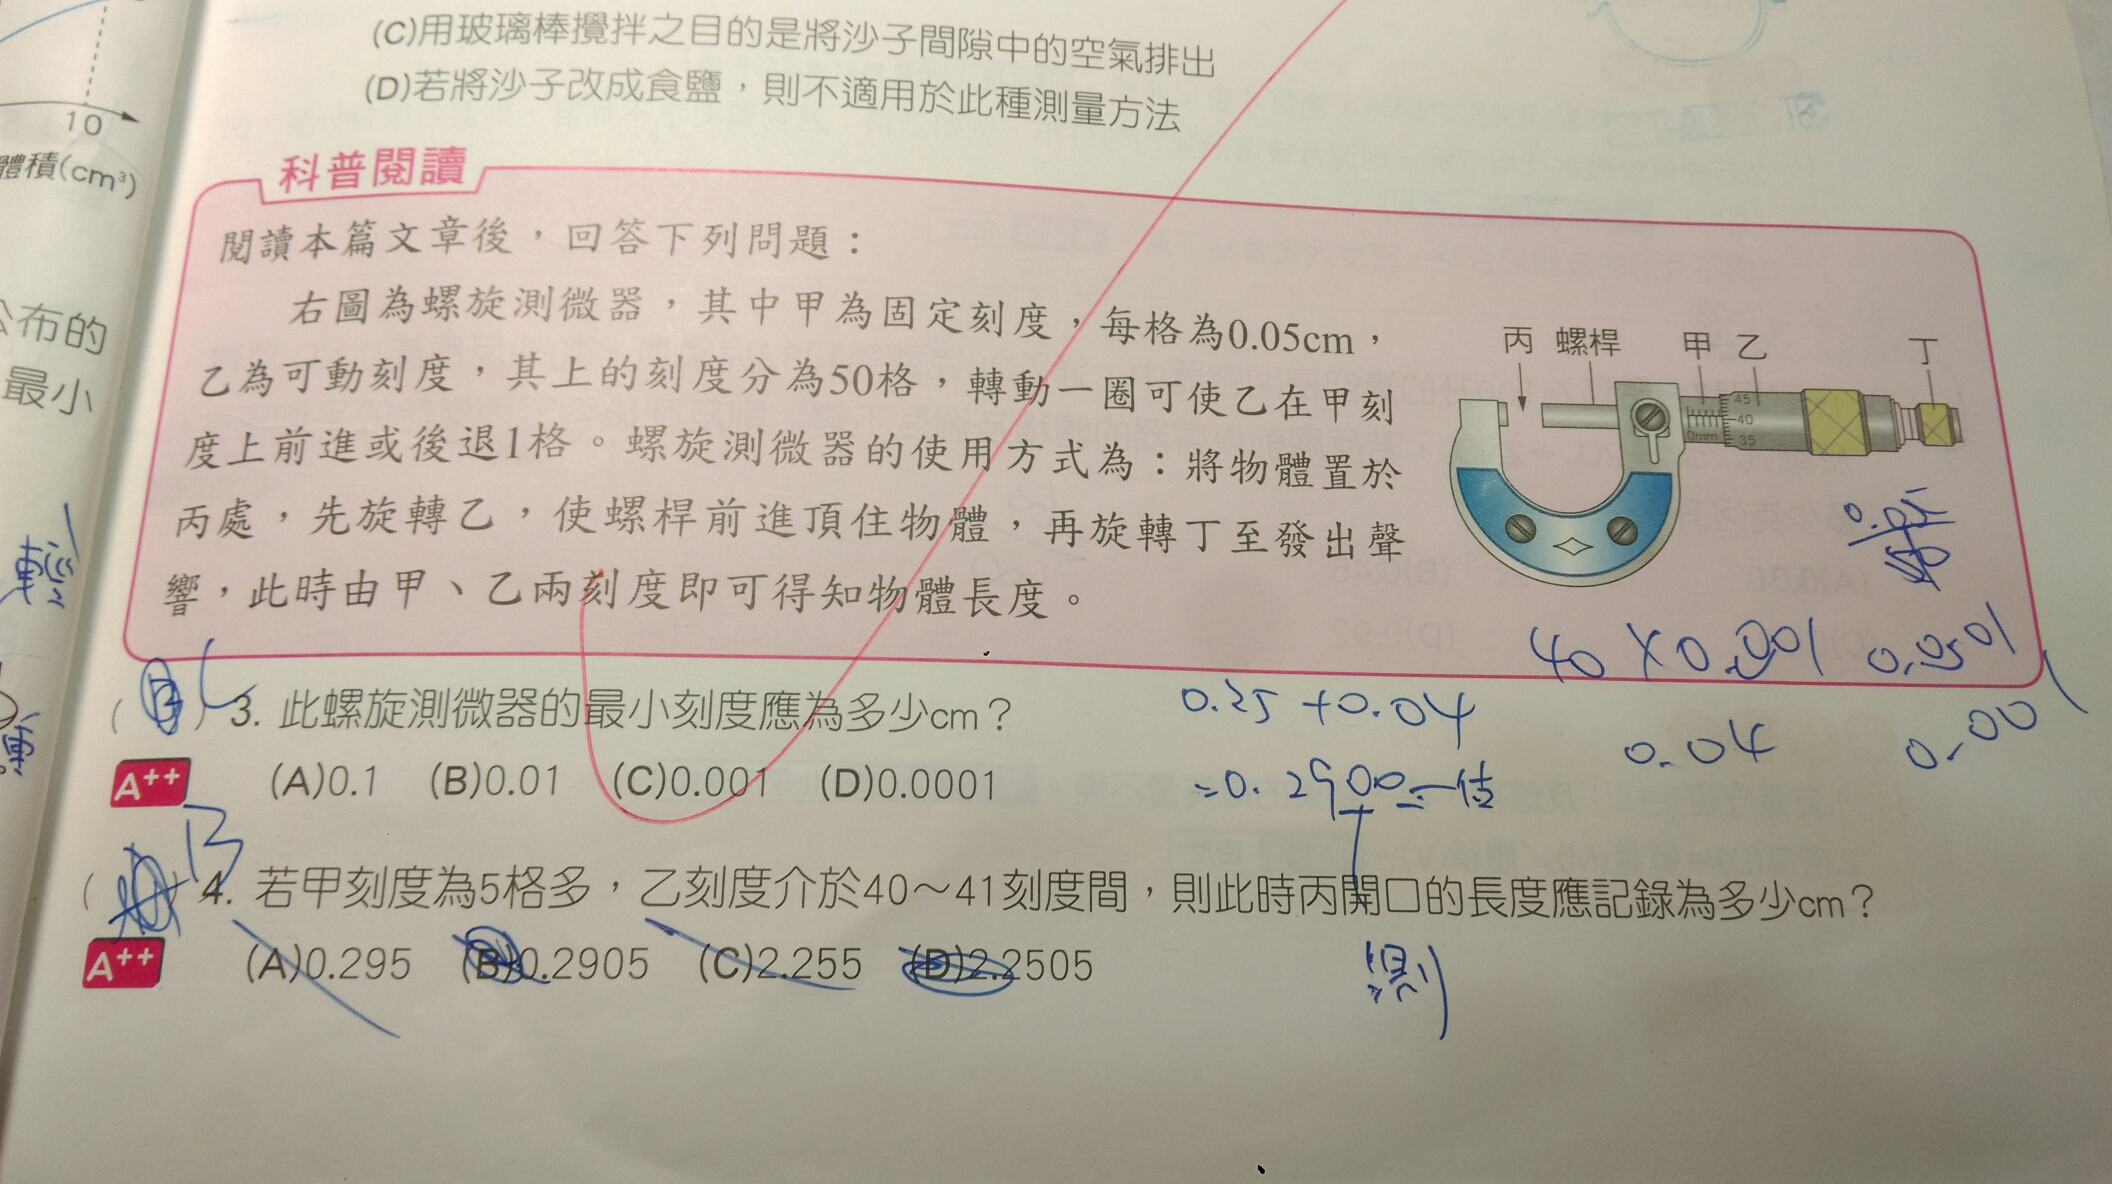 (C)用玻璃棒攪拌之目的是將沙子間隙中的空氣排出
(D)若將沙子改成食鹽，則不適用於此種測量方法
10
體積(cm³)
公布的
最小
輕
科普閱讀
閱讀本篇文章後，回答下列問題：
右圖為螺旋測微器，其中甲為固定刻度，每格為0.05cm，
乙為可動刻度，其上的刻度分為50格，轉動一圈可使乙在甲刻
度上前進或後退1格。螺旋測微器的使用方式為：將物體置於
丙處，先旋轉乙，使螺桿前進頂住物體，再旋轉丁至發出聲
響，此時由甲、乙兩刻度即可得知物體長度。
丙 螺桿 甲 乙 丁
45
40
35
0mm
40×0.001
0.04
0.001
( ) C 3. 此螺旋測微器的最小刻度應為多少cm？
A++ (A)0.1 (B)0.01 (C)0.001 (D)0.0001
0.25+0.04
=0.2900
( ) B 4. 若甲刻度為5格多，乙刻度介於40～41刻度間，則此時丙開口的長度應記錄為多少cm？
A++ (A)0.295 (B)0.2905 (C)2.255 (D)2.2505
測